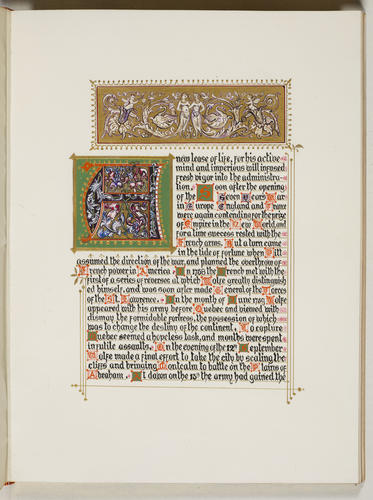 A new lease of life, for his active
mind and imperious will infused
fresh vigor into the administra-
tion. Soon after the opening
of the Seven Years War
in Europe England and France
were again contending for the prize
of Empire in the New World, and
for a time success rested with the
French arms. But a turn came
in the tide of fortune when Pitt
assumed the direction of the war, and planned the overthrow of
French power in America. In 1758 the French met with the
first of a series of reverses at which Wolfe greatly distinguish-
ed himself, and was soon after made General of the Forces
of the St. Lawrence. In the month of June 1759 Wolfe
appeared with his army before Quebec and viewed with
dismay the formidable fortress, the possession of which
was to change the destiny of the continent. To capture
Quebec seemed a hopeless task, and months were spent
in futile assaults. On the evening of the 12th September
Wolfe made a final effort to take the city by scaling the
cliffs and bringing Montcalm to battle on the Plains of
Abraham. At dawn on the 13th the army had gained the